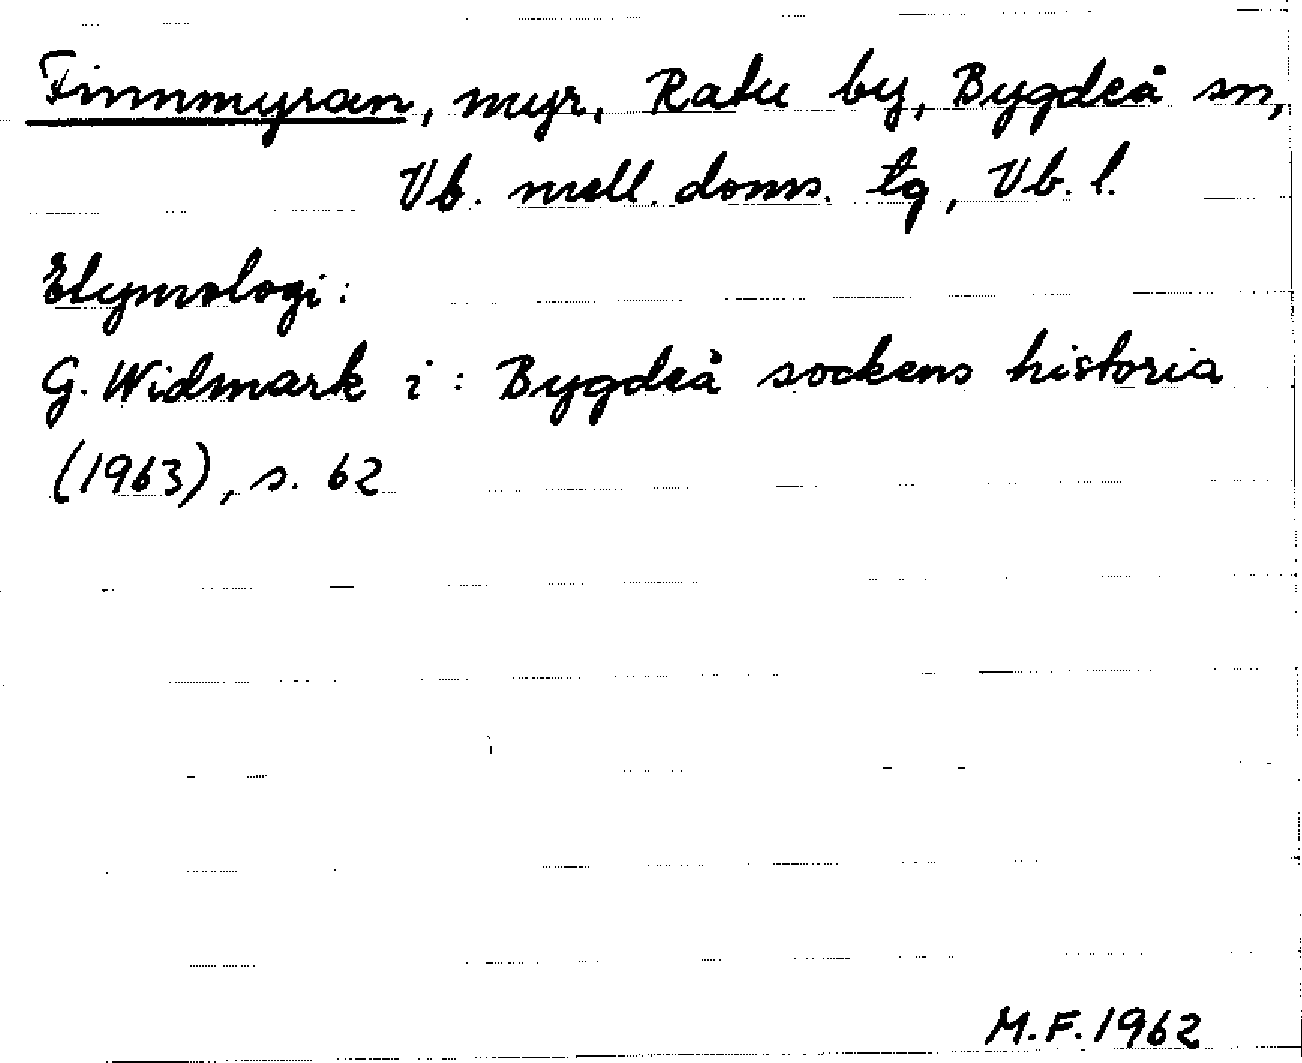 Finnmyran, myr, Ratu by, Bygdeå sn,
Vb. mell. doms. tg, Vb. l.
Etymologi:
G. Widmark i: Bygdeå sockens historia
(1963), s. 62
M.F. 1962